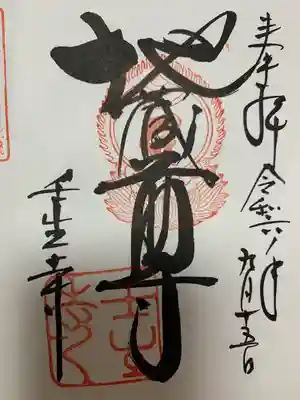 奉拝 令和六年 九月十五日
地蔵尊
壬生寺